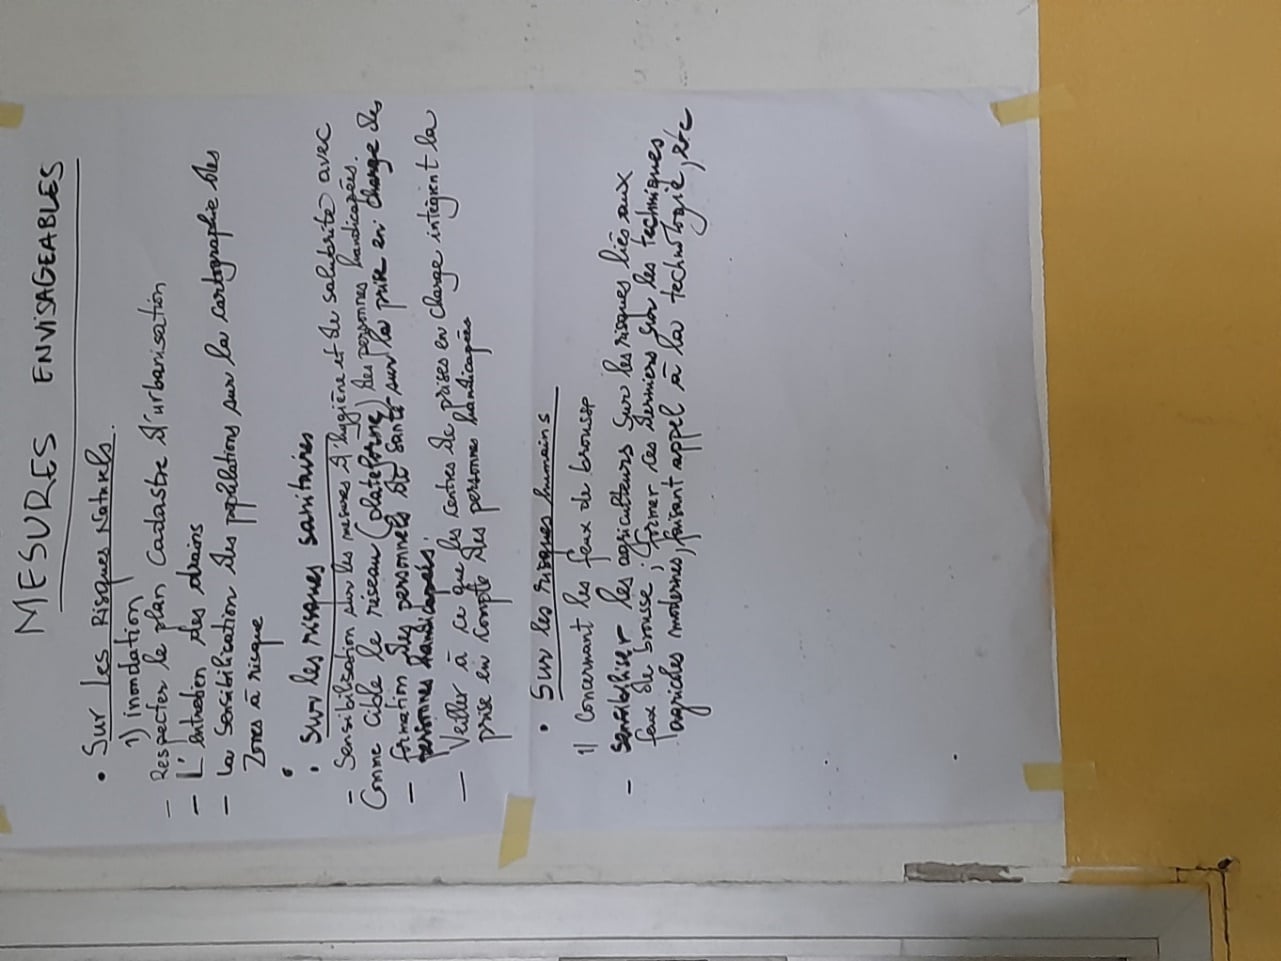 MESURES ENVISAGEABLES
• Sur les Risques Naturels.
1) inondation
- Respecter le plan Cadastre d'urbanisation
- L'entretien des drains
- La Sensibilication des populations sur la cartographie des
Zones à risque
•
• Sur les risques sanitaires
- Sensibilisation sur les mesures d'hygiène et de salubrité avec
Comme cible le réseau (plateforme) des personnes handicapées.
- formation des personnels de santé sur la prise en charge des
personnes handicapés.
- Veiller à ce que les centres de prises en charge intègrent la
prise en compte des personnes handicapées
• Sur les risques humains
1) Concernant les feux de brousse
- Sensibiliser les agriculteurs sur les risques liés aux
feux de brousse, former ces derniers sur les techniques
agricoles modernes, faisant appel à la technologie, etc